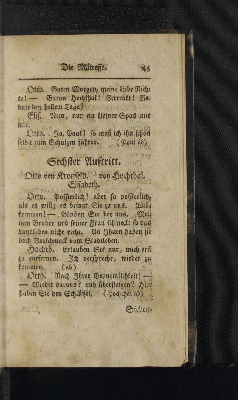 Die Mätresse. 45
Otto. Guten Morgen, meine liebe Nich-
te! — Baron Hochthal! Vermält! Re-
bute den hellen Tage!
Elis. Nein, nur ein kleiner Spas mit
mir.
Otto. Ja, Paul! so muß ich ihn schon
selbst zum Schulzen führen. (Paul ab)
Sechster Auftritt.
Otto von Kronfeld. von Hochthal.
Elisabeth.
Otto. Possierlich! aber so possierlich,
als es willig es bringt Sie zu uns. Will-
kommen! — Bleiben Sie bei uns. Mei-
nem Bruder und seiner Frau schmeckt so das
Landleben nicht recht. An Ihnen haben sie
doch Vorschmack vom Stadtleben.
Hochth. Erlauben Sie nur, mich erst
zu entfernen. Ich verspreche, wieder zu
kommen. (ab)
Otto. Nach Ihrer Bequemlichkeit! —
— Wieder daraus? und übersteigen? Hier
haben Sie den Schlüssel. (Hochthal ab)